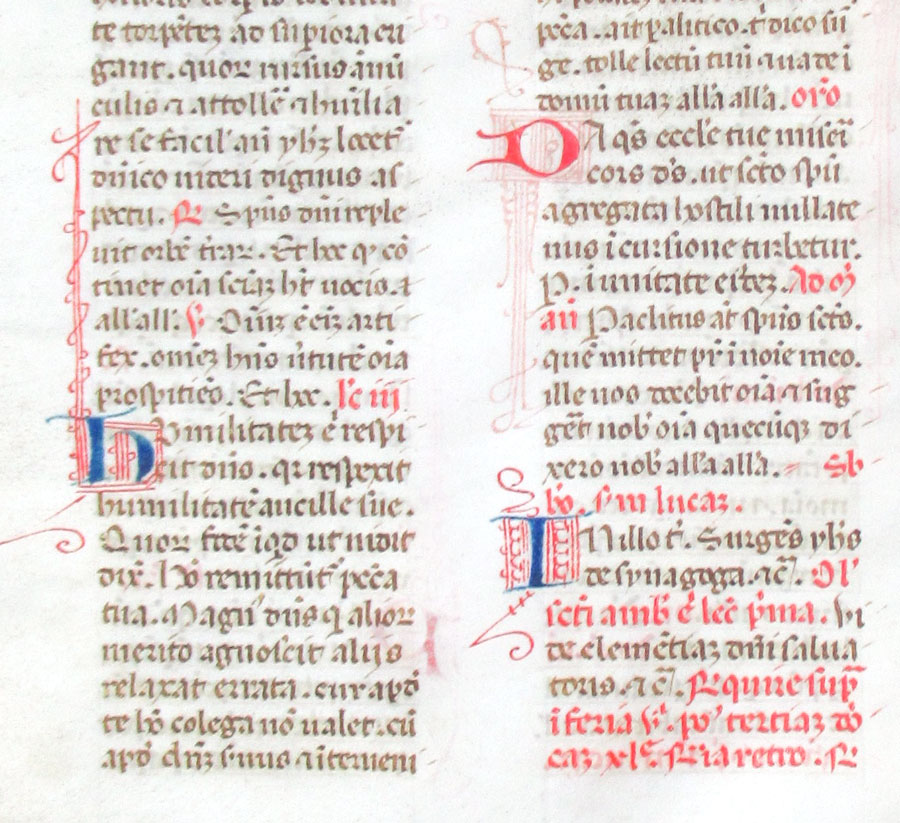 te torpētez ad supiora eri
gant. quor rursus aīmū
culis ⁊ attollē ⁊ humilia
re se facil' aū yh̄z lcēt
dn̄ico uiteri dignus as
pectu. R Sp̄us dn̄i reple
uit orbē t̄rar. Et hoc qͥ cō
tinet oīa sciāz h̄t uocis. ⁊
all'all'. v̄ Om̄iz ē eīz arti
fex. omēz hn̄s ūtutē oīa
prospiciēs. Et hoc. lc̄ iii
Humilitatez ē respi
cit dn̄s. qr respexit
humilitatē ancille sue.
Quor fidē iqͥd ut uidit
dix̄. hō remittūt̄ pcc̄a
tua. Magn' dn̄s qͥ alior
merito agnoscit alijs
relaxat errata. cur apd̄
te hō colega nō ualet. cū
apd̄ dn̄z suus ⁊ iterueni
pcc̄a. ait palitico. t̄ dico sū
ge. tolle lectū tuū ⁊ uade ī
domū tuaz all'a all'a. orō
DA qs̄ eccl'e tue miserī
cors ds̄. ut sct̄o spū
agregata hostili nullate
nus īcursione turbetur.
P. ī unitate ei'dez. Ad m̄
an̄ Paclitus āt spūs sct̄s.
quē mittet pr̄ ī noīe meo.
ille uos docebit oīa ⁊ sug
gēt nob' oīa quecūqz di
xero nob' all'a all'a. Sb̄
bō. sm̄ lucaz.
IN illo t̄. Surgēs yh̄s
de synagoga. ⁊c̄. Ol'
sct̄i amb̄ ē lec̄ pͥma. Vi
de clemētiaz dn̄i salua
toris. ⁊c̄. R quire sup̄
ī feria v̄. po' tertiaz dō
caz xl̄e. R ia retro. R